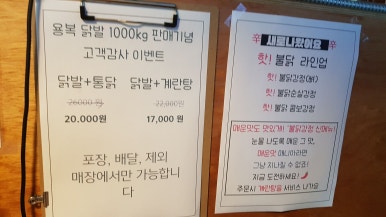 용복 닭발 1000kg 판매기념
고객감사 이벤트
닭발+통닭 닭발+계란탕
26000원 22,000원
20.000원 17,000 원
포장, 배달, 제외
매장에서만 가능합니
다
辛 새로나왔어요 辛
핫! 불닭 라인업
핫! 불닭강정(뼈)
핫! 불닭순살강정
핫! 불닭 콤보강정
매운맛도 맛있게! '불닭강정 신메뉴!
눈물 나도록 매운 그 맛,
매운맛 매니아라면
그냥 지나칠 수 없죠!
지금 도전하세요!
주문시 계란탕을 서비스 나가요